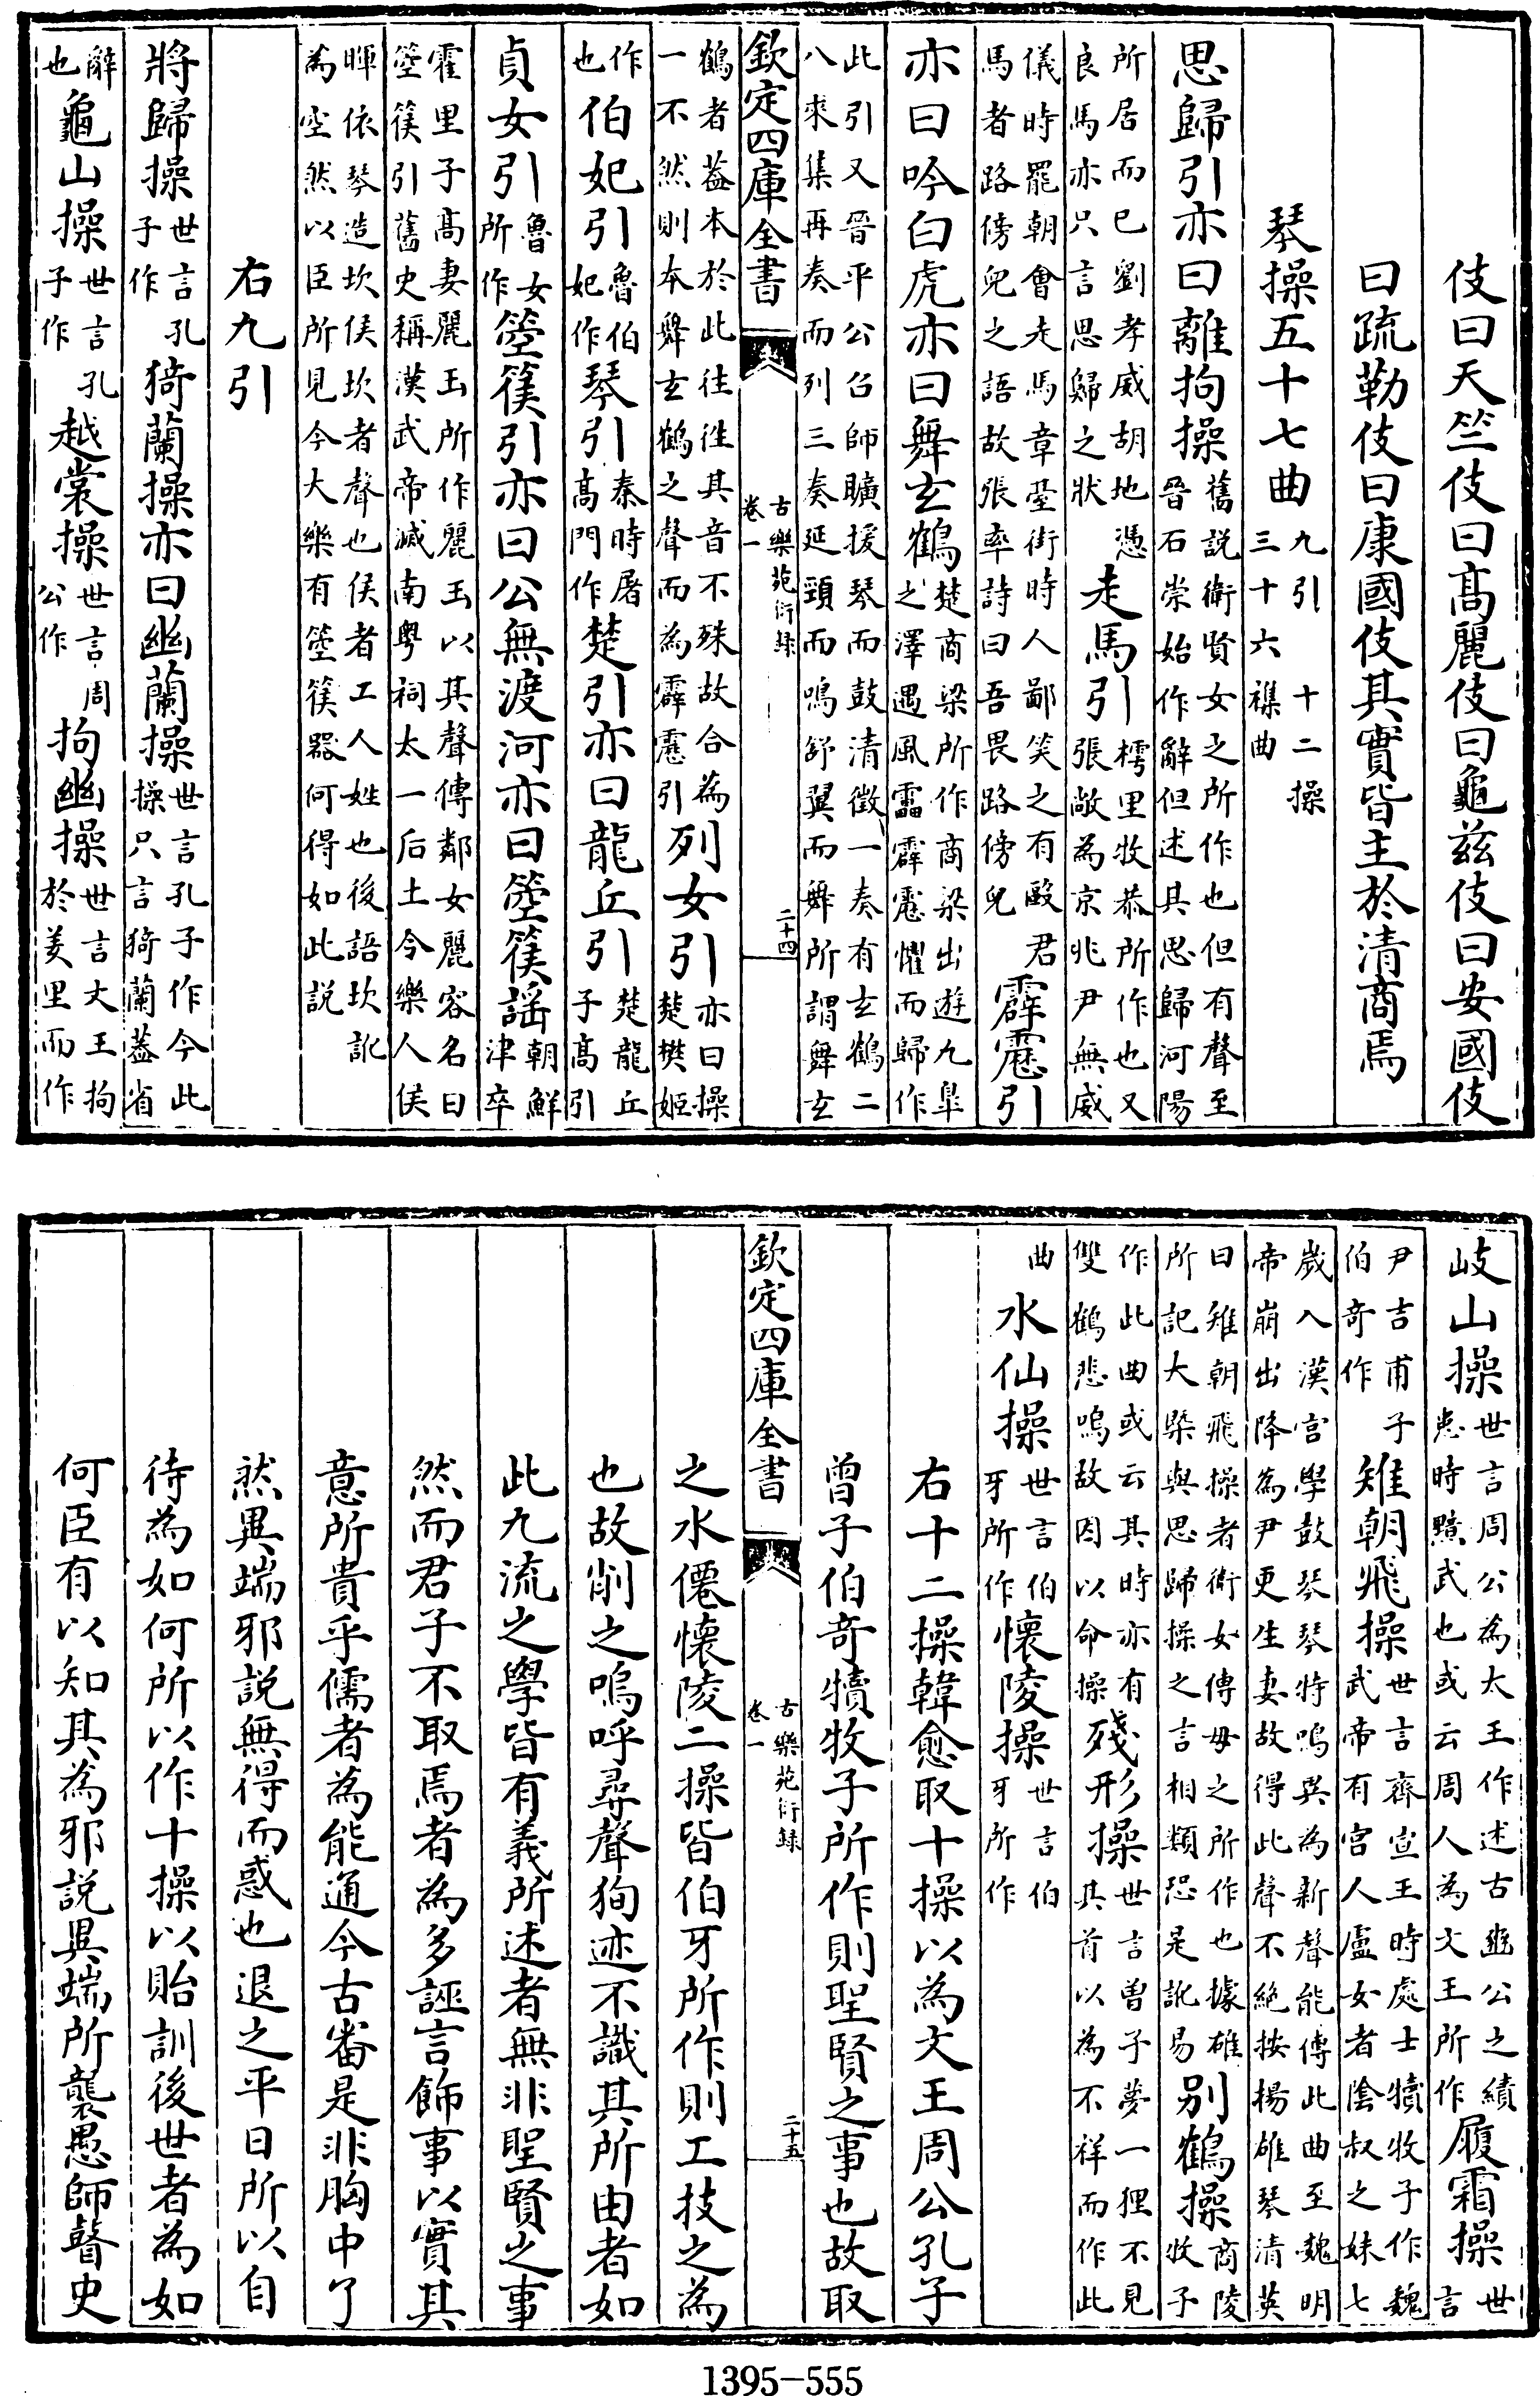 伎曰天竺伎曰髙麗伎曰龜兹伎曰安國伎
曰疏勒伎曰康國伎其實皆主於清商焉
琴操五十七曲九引十二操三十六襍曲
思歸引亦曰離拘操舊説衛賢女之所作也但有聲至晉石崇始作辭但述其思歸河陽
所居而已劉孝威胡地憑良馬亦只言思歸之狀走馬引樗里牧恭所作也又張敞為京兆尹無威
儀時罷朝會走馬章臺街時人鄙笑之有毆君馬者路傍兒之語故張率詩曰吾畏路傍兒霹靂引
亦曰吟白虎亦曰舞玄鶴楚商梁所作商梁出遊九臯之澤遇風雷霹靂懼而歸作
此引又晉平公召師曠援琴而鼓清徵一奏有玄鶴二八來集再奏而列三奏延頸而鳴舒翼而舞所謂舞玄
欽定四庫全書 古樂苑衍録 卷一 二十四
鶴者蓋本於此往往其音不殊故合為一不然則本舞玄鶴之聲而為霹靂引列女引亦曰操楚樊姬
作也伯妃引魯伯妃作琴引秦時屠髙門作楚引亦曰龍丘引楚龍丘子髙引
貞女引魯女所作箜篌引亦曰公無渡河亦曰箜篌謡朝鮮津卒
霍里子髙妻麗玉所作麗玉以其聲傳鄰女麗容名曰箜篌引舊史稱漢武帝滅南粤祠太一后土令樂人侯
暉依琴造坎侯坎者聲也侯者工人姓也後語坎訛為空然以臣所見今大樂有箜篌器何得如此説
右九引
將歸操世言孔子作猗蘭操亦曰幽蘭操世言孔子作今此操只言猗蘭蓋省
辭也龜山操世言孔子作越裳操世言周公作拘幽操世言文王拘於羑里而作
岐山操世言周公為太王作述古豳公之績患時黷武也或云周人為文王所作履霜操世言
尹吉甫子伯奇作雉朝飛操世言齊宣王時處士犢牧子作魏武帝有宫人盧女者陰叔之妹七
歲入漢宫學鼓琴琴特鳴異為新聲能傳此曲至魏明帝崩出降為尹更生妻故得此聲不絶按揚雄琴清英
曰雉朝飛操者衛女傅母之所作也據雄所記大槩與思歸操之言相類恐是訛易别鶴操商陵牧子
作此曲或云其時亦有雙鶴悲鳴故因以命操殘形操世言曽子夢一狸不見其首以為不祥而作此
曲水仙操世言伯牙所作懷陵操世言伯牙所作
右十二操韓愈取十操以為文王周公孔子
曾子伯奇犢牧子所作則聖賢之事也故取
欽定四庫全書 古樂苑衍録 卷一 二十五
之水僊懷陵二操皆伯牙所作則工技之為
也故削之嗚呼尋聲狥迹不識其所由者如
此九流之學皆有義所述者無非聖賢之事
然而君子不取焉者為多誣言飾事以實其
意所貴乎儒者為能通今古審是非胸中了
然異端邪説無得而惑也退之平日所以自
待為如何所以作十操以貽訓後世者為如
何臣有以知其為邪説異端所襲愚師瞽史
1395-555